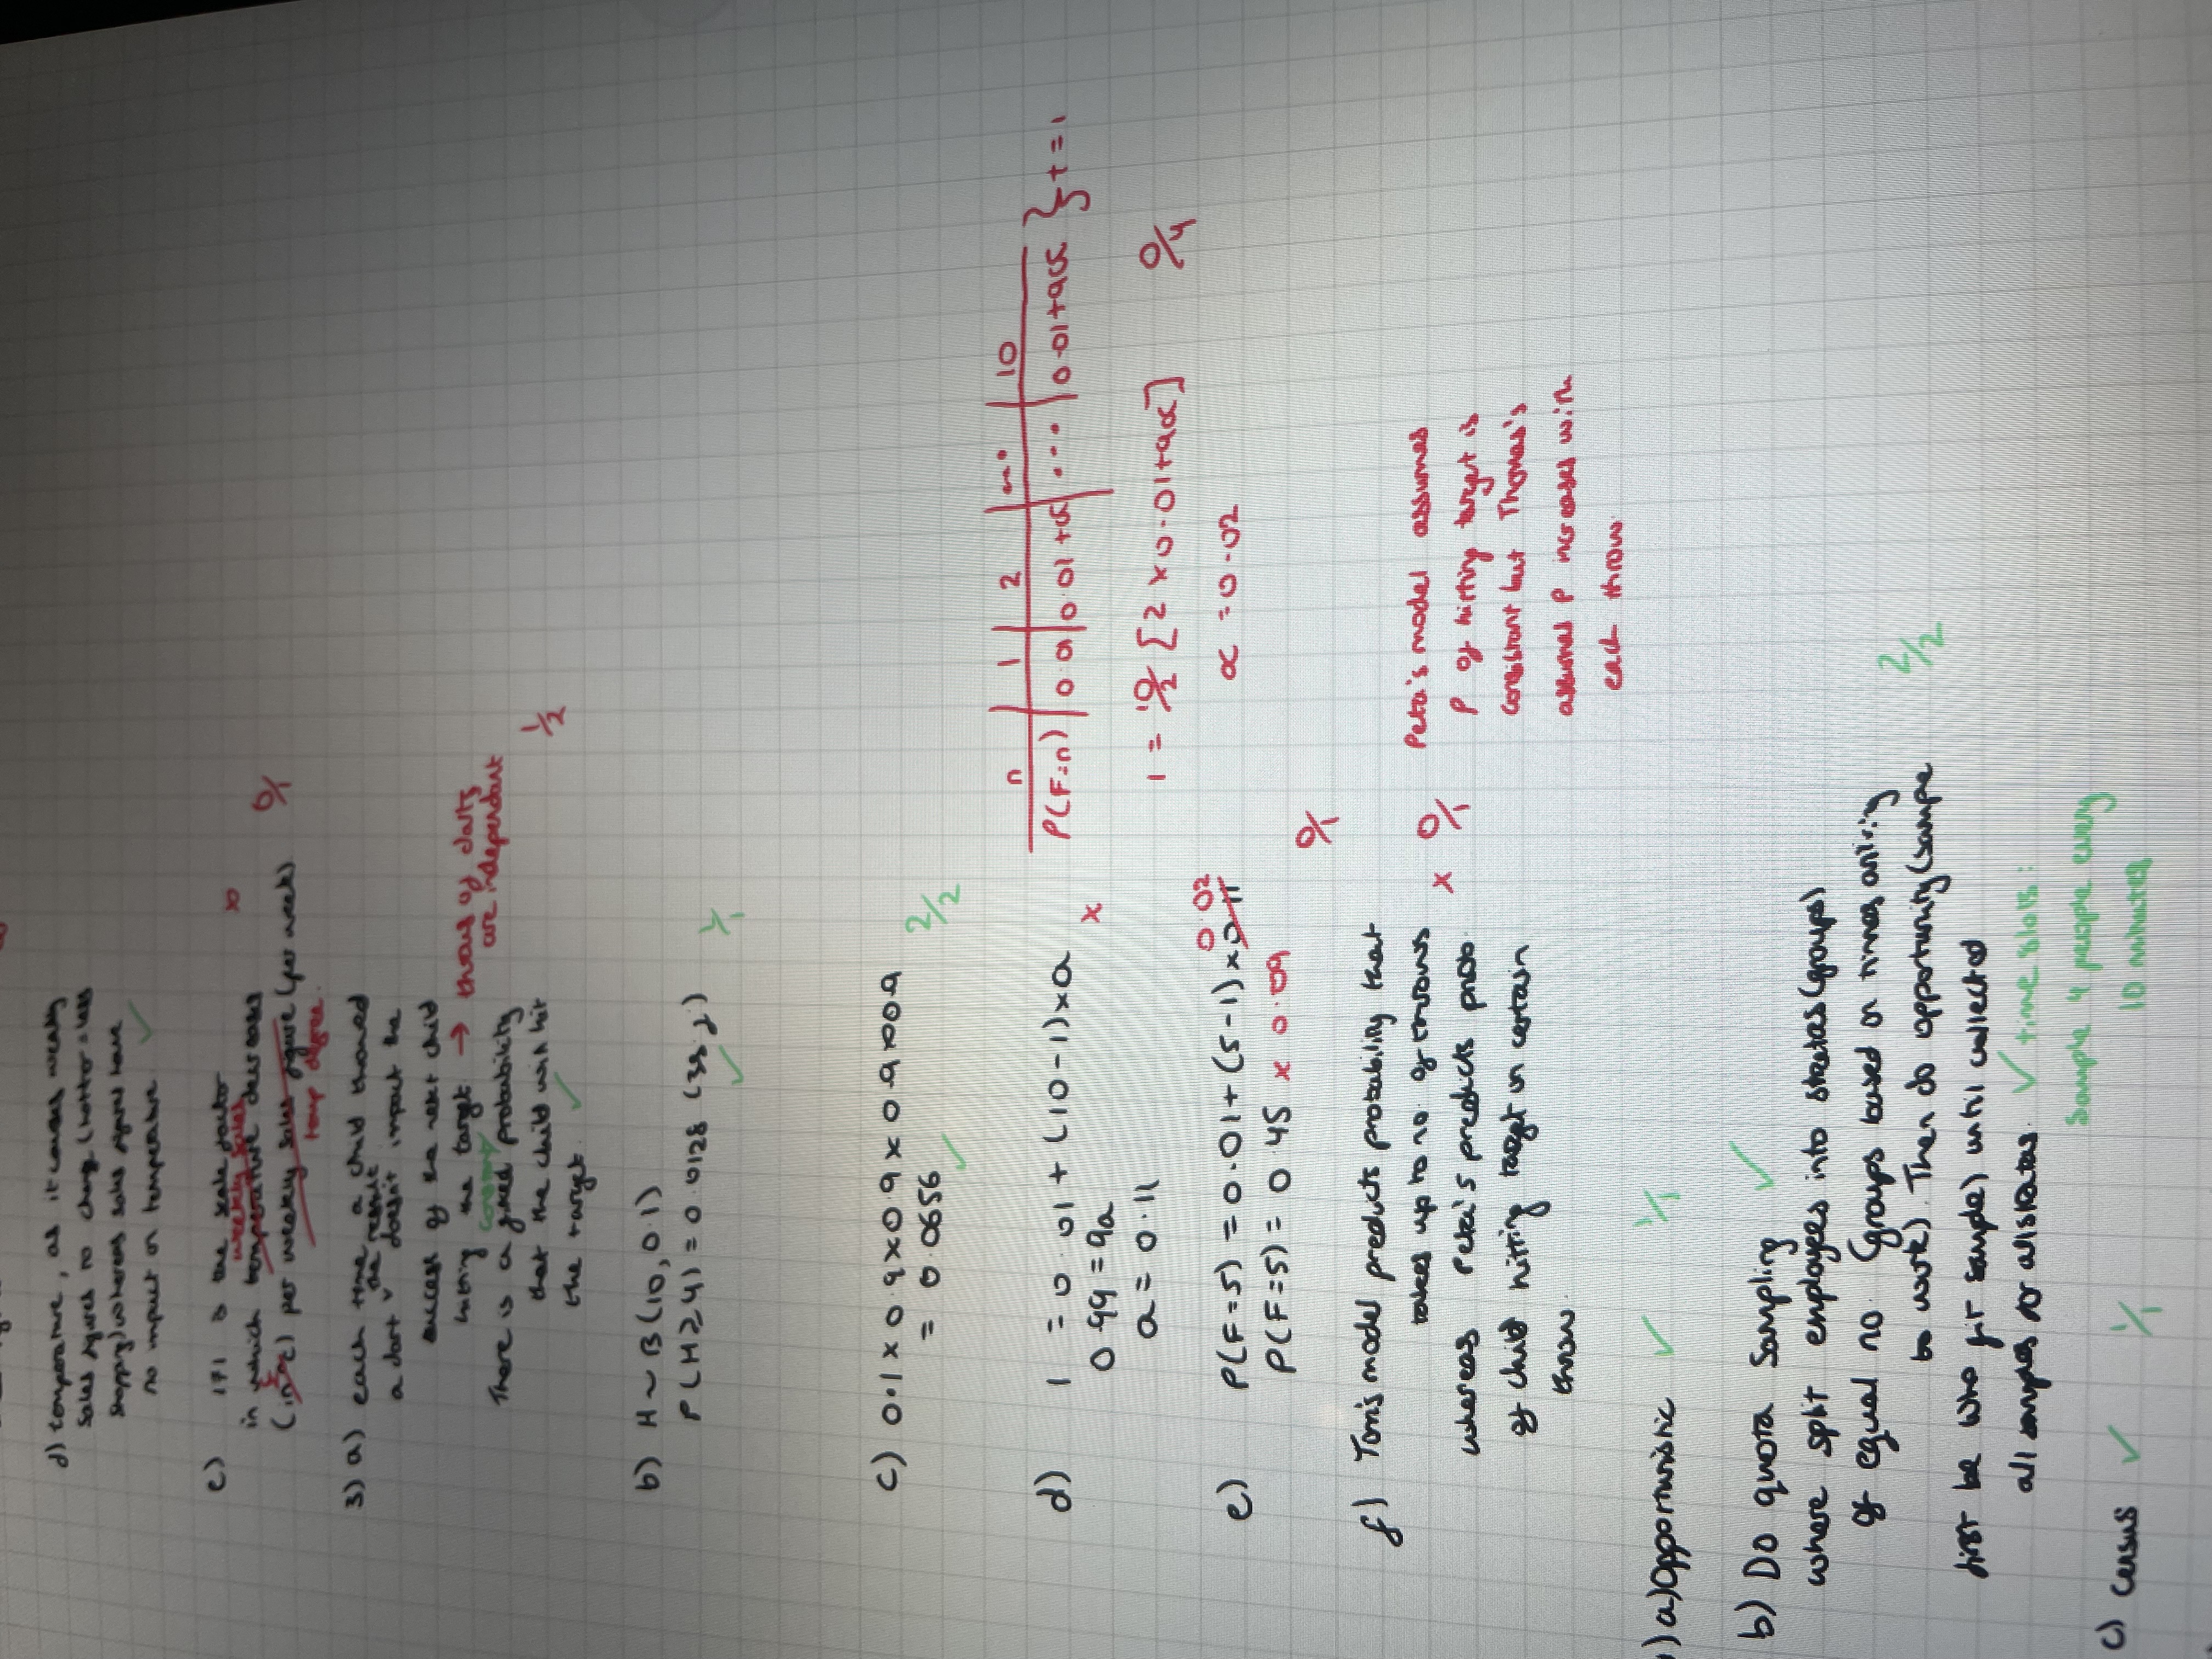 d) temperature, as it causes weekly
sales figures to change (hotter = less
shopping) whereas sales figures have
no impact on temperature. ✓
e) 171 is the scale factor
weekly sales x 0/1
in which temperature decreases
(in £) per weekly sales figure (per week)
temp degree.
3) a) each time a child throws
a dart the result doesn't impact the
success of the next child
hitting the target → throws of darts
are independant
constant
There is a fixed probability 1/2
that the child will hit
the target. ✓
b) H ~ B(10, 0.1)
P(H ≥ 4) = 0.0128 (3s.f) 1/1
✓
c) 0.1 x 0.9 x 0.9 x 0.9 x 0.9 2/2
= 0.0656 ✓
d) 1 = 0.01 + (10-1) x a x
0.99 = 9a
a = 0.11
n | 1 | 2 | ... | 10
P(F=n) | 0.01 | 0.01+α | ... | 0.01+9α } t = 1
1 = 10/2 [2 x 0.01 + 9α] 0/4
α = 0.02
e) P(F=5) = 0.01 + (5-1) x 0.11 0.02
P(F=5) = 0.45 x 0.09 0/1
f) Tom's model predicts probability that
takes up to no. of throws x 0/1
whereas Peta's predicts prob.
of child hitting target in certain
throw.
Peta's model assumes
P of hitting target is
constant but Thomas's
assumes P increases with
each throw.
) a) Opportunistic ✓ 1/1
b) Do quota sampling ✓
where split employees into stratas (groups)
of equal no. (groups based on times arriving 2/2
to work). Then do opportunity (sample
first be who fit sample) until collected
all samples for all stratas. ✓ time slots:
Sample 4 people every
10 minutes
c) census ✓ 1/1